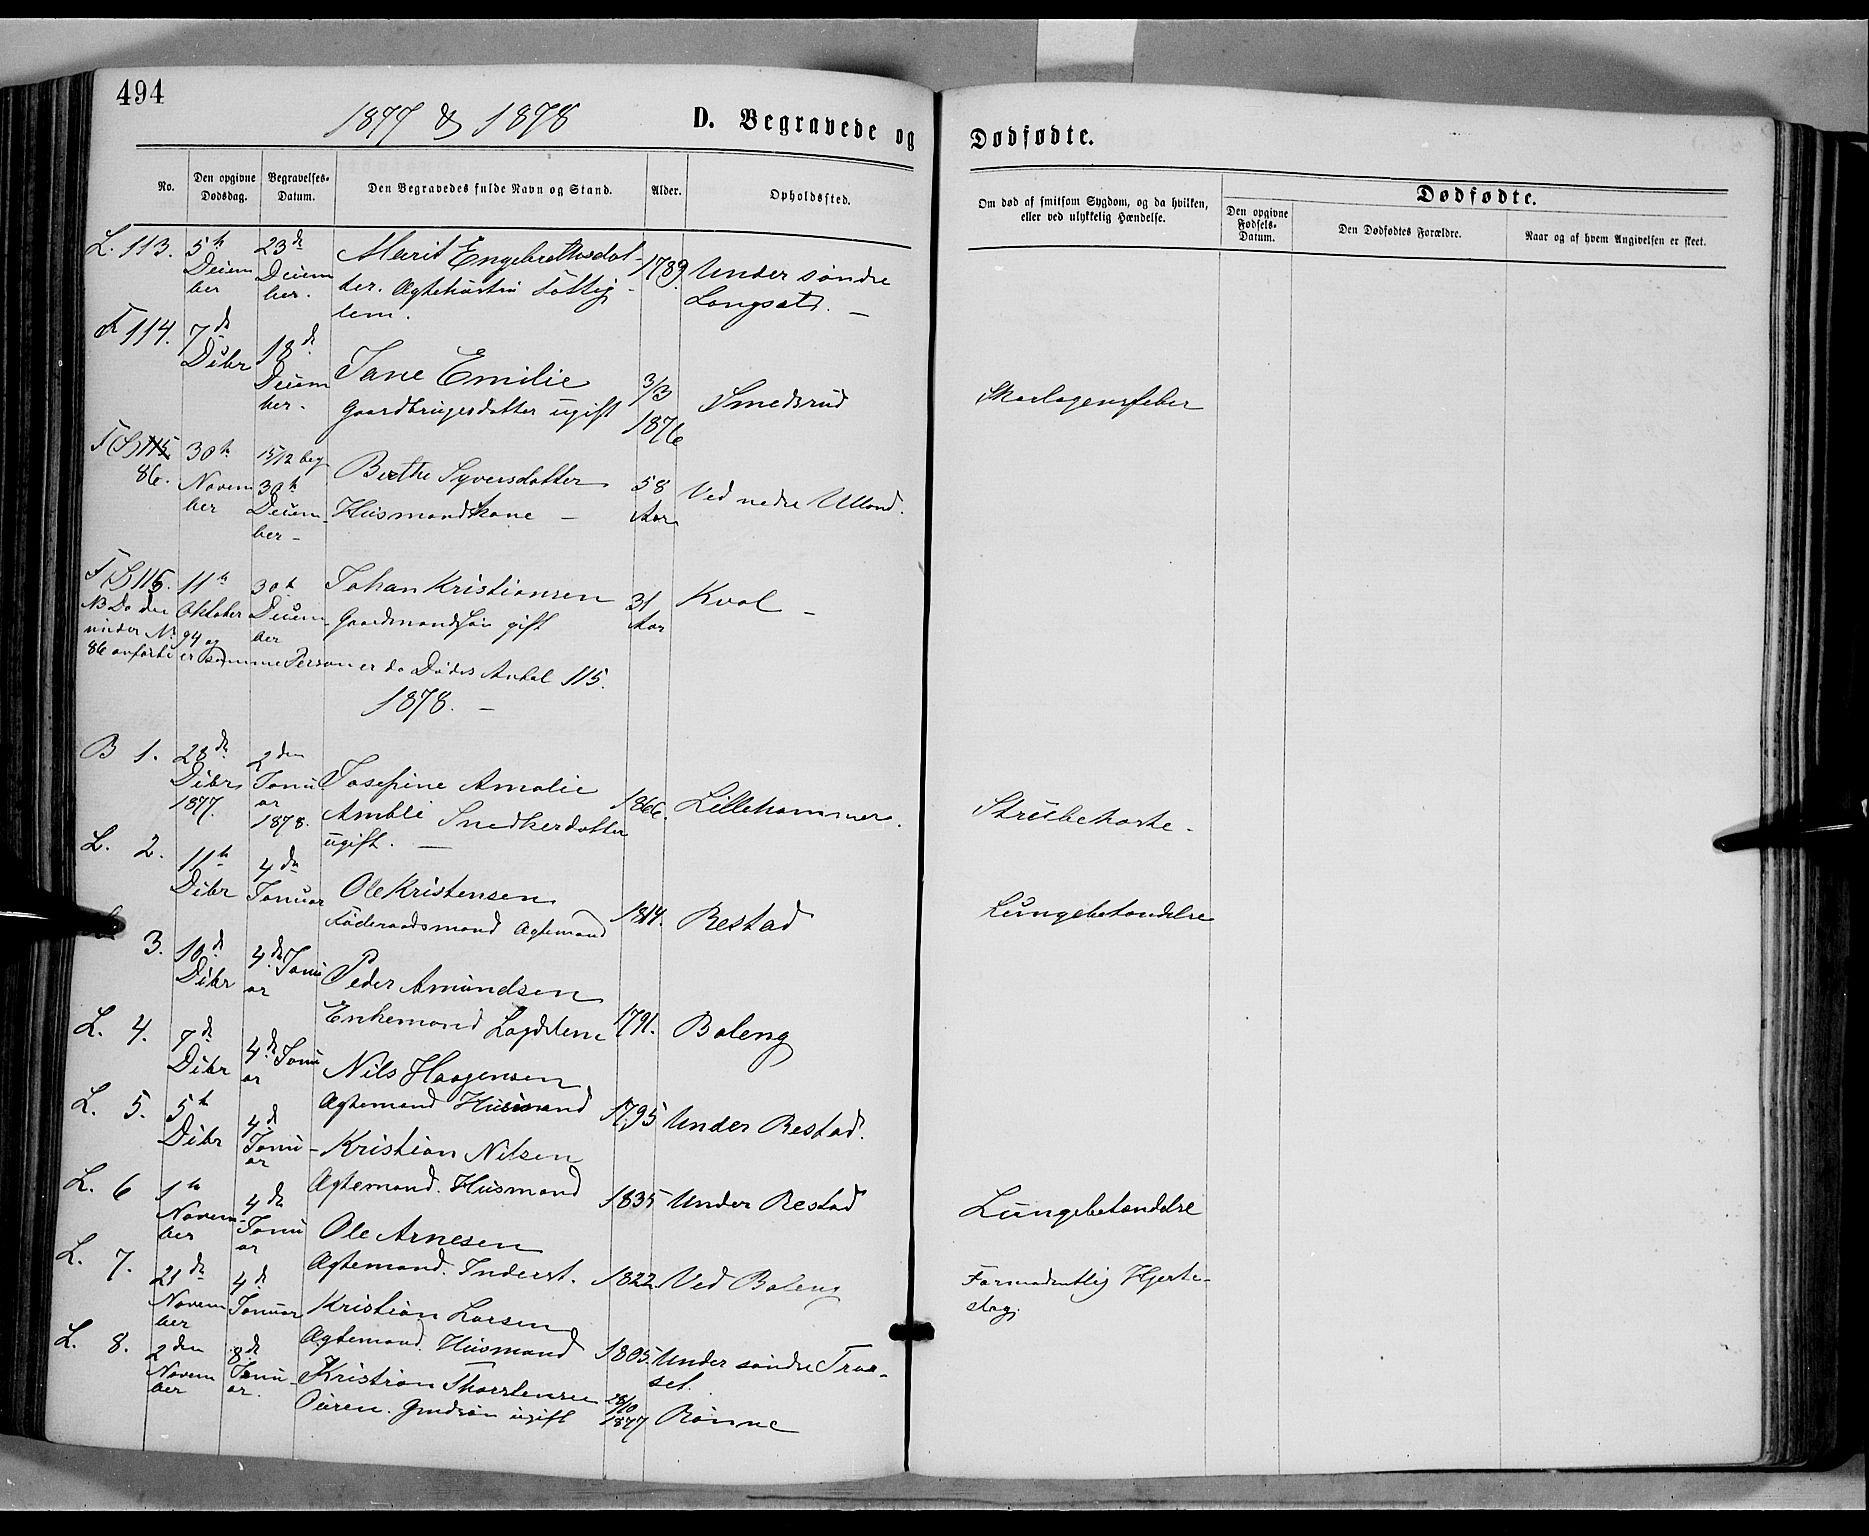 494
1877 & 1878
D. Begravede og Dødfødte.
No.
Den opgivne Dødsdag.
Begravelses-Datum.
Den Begravedes fulde Navn og Stand.
Alder.
Opholdssted.
Om død af smitsom Sygdom, og da hvilken, eller ved ulykkelig Hændelse.
Dødfødte.
Den opgivne Fødsels-Datum.
Den Dødfødtes Forældre.
Naar og af hvem Angivelsen er skeet.
L. 113. 5te Decem ber 23de Decem ber. Marit Engebrethsdat-
ter. Ægtekone Fattig-
lem. 1789. Under søndre
Langsæt. —
F 114. 7de Dcbr 18de Decem ber. Jane Emilie
Gaardbrugerdatter ugift 3/3 1876 Smedsrud Skarlagensfeber
F 115 86. 30te Novem ber 15/12 beg 30te Decem ber — Berthe Syversdatter
Husmandskone — 58 Aar Ved nedre Uland.
F 115. 11te Oktober 30te Decem ber Johan Kristiansen
Gaardmandssøn gift 31 Aar Kval —
NB Da den
under No 94 og
86 anførte er samme Person er de Dødes Antal 115.
1878. —
B 1. 28de Dcbr 1877. 2den Janu ar 1878. Josefine Amalie
Ambli Snedkerdatter
ugift. — 1866. Lillehammer. Strubehoste.
L. 2. 11te Dcbr 4de Januar Ole Kristensen
Føderaadsmand Ægtemand 1814. Restad Lungebetændelse
3. 10de Dcbr 4de Janu ar Peder Amundsen
Enkemand Lægdslem 1791. Baleng
L. 4. 7de Dcbr 4de Janu ar Nils Haagensen
Ægtemand Husmand 1795 Under Restad.
L. 5. 5te Dcbr 4de Janu ar Kristian Nilsen
Ægtemand. Husmand 1835 Under Restad Lungebetændelse
L. 6 1te Novem ber 4de Janu ar Ole Arnesen
Ægtemand. Inderst. 1822 Ved Baleng Formodentlig Hjerte-
slag.
L. 7. 21de Novem ber 4de Januar Kristian Larsen
Ægtemand. Husmand 1805. Under søndre Traa-
set.
L. 8. 2den Novem ber 8de Janu ar. Kristian Thorstensen
ugift 28/10 1877 Rønne